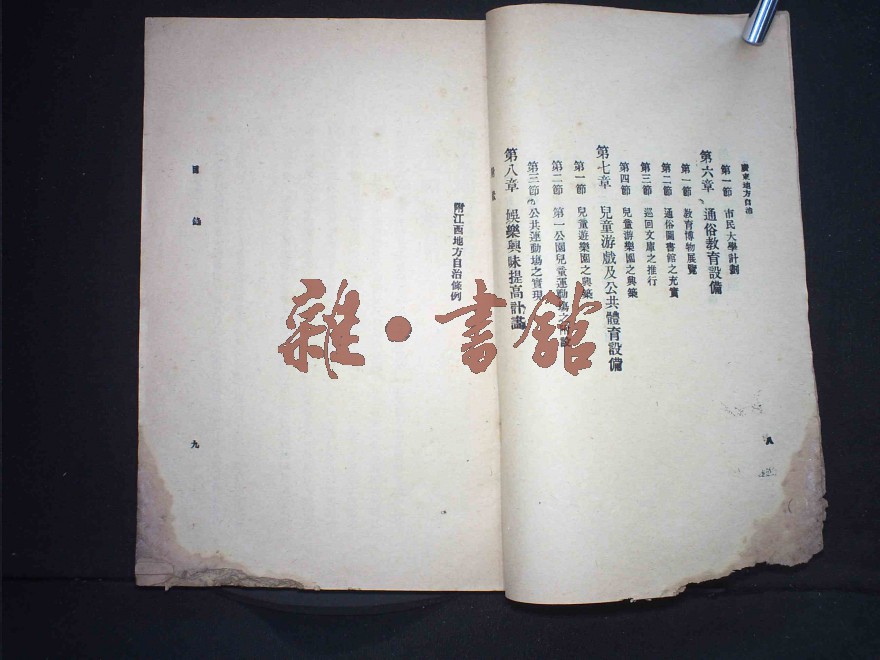 廣東地方自治
第六章 通俗教育設備
第一節 市民大學計劃
第一節 教育博物展覽
第二節 通俗圖書館之充實
第三節 巡回文庫之推行
第四節 兒童游樂園之興築
第七章 兒童游戲及公共體育設備
第一節 兒童遊樂園之興築
第二節 第一公園兒童運動場之
第三節 公共運動場之實現
第八章 娛樂興味提高計畫
八
附江西地方自治條例
目錄
九
雜·書館